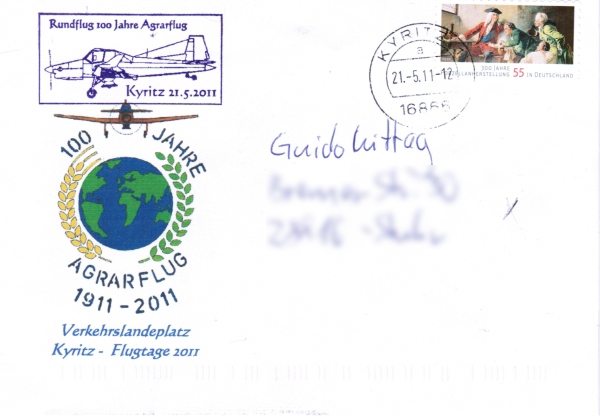 Rundflug 100 Jahre Agrarflug
Kyritz 21.5.2011
100 JAHRE
AGRARFLUG
1911-2011
Verkehrslandeplatz
Kyritz - Flugtage 2011
KYRITZ
a
21.-5.11-12
16866
300 JAHRE
PORZELLANHERSTELLUNG 55 IN DEUTSCHLAND
Guido Mittag